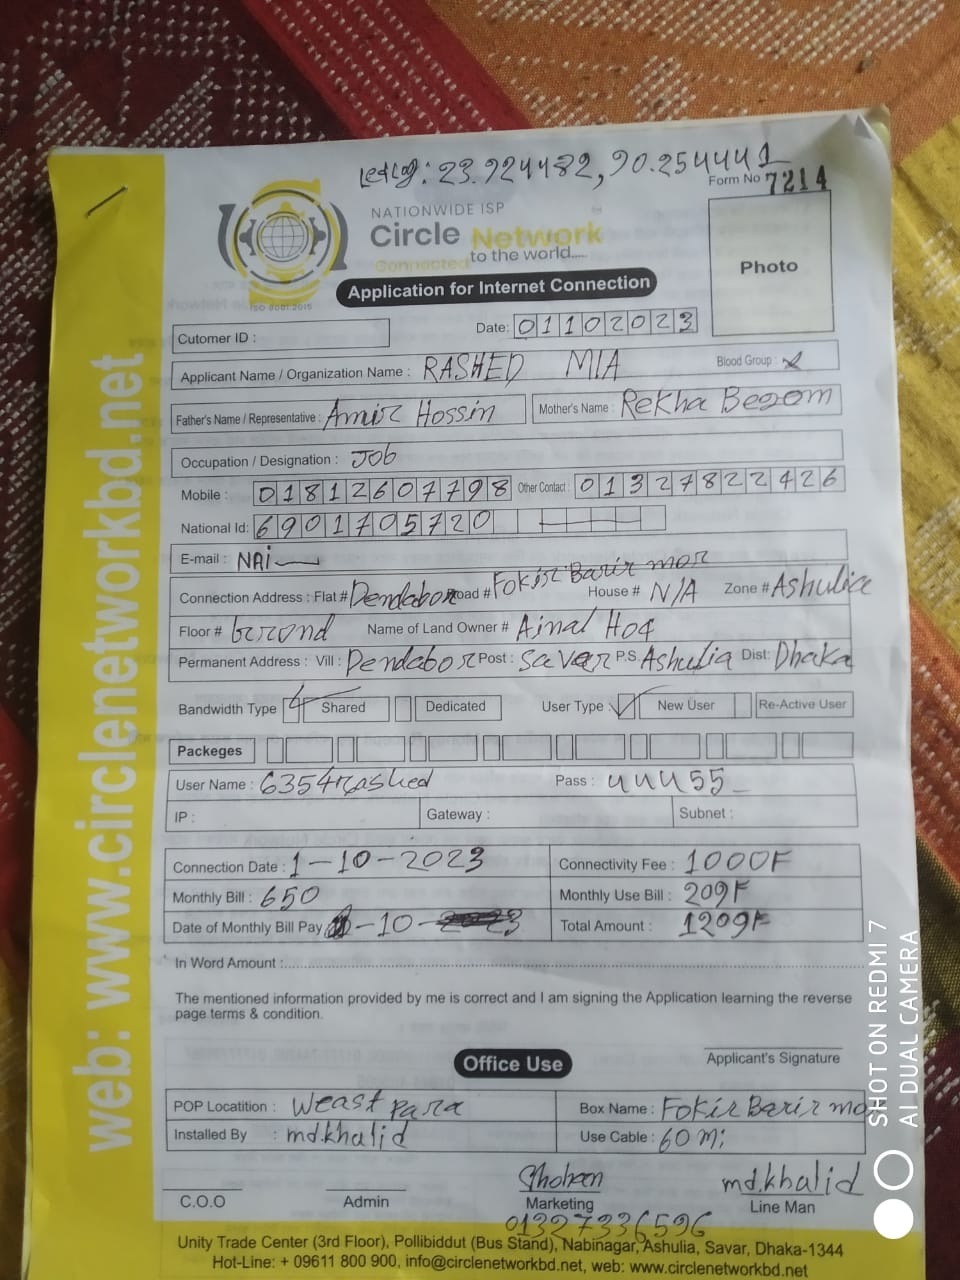 : 23.924482, 90.254441
Form No 7214
NATIONWIDE ISP
Circle Network
Connected to the world.....
ISO 9001:2015
Photo
Application for Internet Connection
Cutomer ID :
Date: 01102023
Applicant Name / Organization Name : RASHED MIA Blood Group :
Father's Name / Representative : Amir Hossin Mother's Name : Rekha Begom
Occupation / Designation : Job
Mobile : 01812607798 Other Contact : 01327822426
National Id: 6901705720
E-mail : NAi
Connection Address : Flat # Dendabor Road # Fokir Barir mor House # N/A Zone # Ashulia
Floor # Grond Name of Land Owner # Ainal Hoq
Permanent Address : Vill : Dendabor Post : Savar P.S Ashulia Dist: Dhaka
Bandwidth Type Shared Dedicated User Type New User Re-Active User
Packeges
User Name : 6354rashed Pass : uuu55
IP : Gateway : Subnet :
Connection Date : 1-10-2023 Connectivity Fee : 1000F
Monthly Bill : 650 Monthly Use Bill : 209F
Date of Monthly Bill Pay -10- Total Amount : 1209F
In Word Amount :
The mentioned information provided by me is correct and I am signing the Application learning the reverse
page terms & condition.
Applicant's Signature
Office Use
POP Locatition : Weast para Box Name : Fokir Barir mor
Installed By : md.khalid Use Cable : 60 mi
md.khalid
C.O.O Admin Marketing Line Man
01327336596
Unity Trade Center (3rd Floor), Pollibiddut (Bus Stand), Nabinagar, Ashulia, Savar, Dhaka-1344
Hot-Line: + 09611 800 900, info@circlenetworkbd.net, web: www.circlenetworkbd.net
web: www.circlenetworkbd.net
SHOT ON REDMI 7
AI DUAL CAMERA